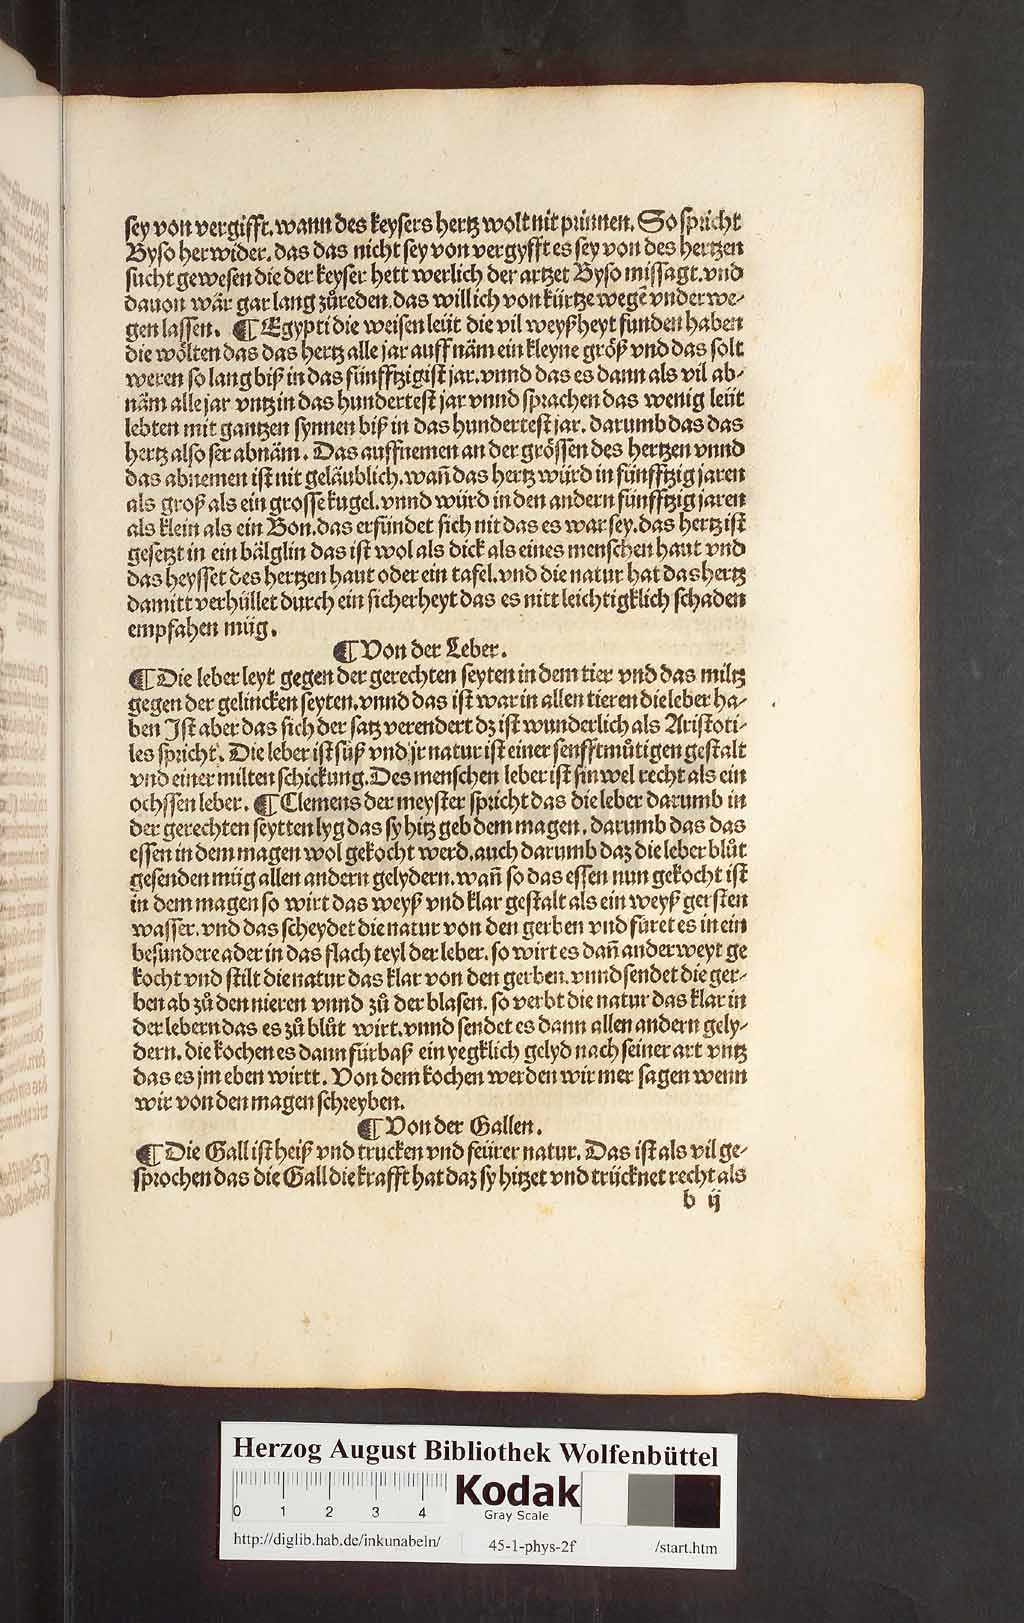 sey von vergifft. wann des keysers hertz wolt nit prinnen. So spricht
Byso herwider. das das nicht sey von vergyfft es sey von des hertzen
sucht gewesen die der keyser hett werlich der artzet Byso missagt. vnd
dauon wär gar lang zůreden. das will ich von kürtze wegē vnderwe-
gen lassen. ¶ Egypti die weisen leüt die vil weyßheyt funden haben
die wölten das das hertz alle jar auff näm ein kleyne größ vnd das solt
weren so lang biß in das fünfftzigist jar. vnnd das es dann als vil ab-
näm alle jar vntz in das hundertest jar vnnd sprachen das wenig leüt
lebten mit gantzen synnen biß in das hundertest jar. darumb das das
hertz also ser abnäm. Das auffnemen an der grössen des hertzen vnnd
das abnemen ist nit geläublich. wañ das hertz würd in fünfftzig jaren
als groß als ein grosse kugel. vnnd würd in den andern fünfftzig jaren
als klein als ein Bon. das erfündet sich nit das es war sey. das hertz ist
gesetzt in ein bälglin das ist wol als dick als eines menschen haut vnd
das heysset des hertzen haut oder ein tafel. vnd die natur hat das hertz
damitt verhüllet durch ein sicherheyt das es nitt leichtigklich schaden
empfahen müg.
¶ Von der Leber.
¶ Die leber leyt gegen der gerechten seyten in dem tier vnd das miltz
gegen der gelincken seyten. vnnd das ist war in allen tieren die leber ha-
ben Ist aber das sich der satz verendert dz ist wunderlich als Aristoti-
les spricht. Die leber ist süß vnd jr natur ist einer senfftmůtigen gestalt
vnd einer milten schickung. Des menschen leber ist sinwel recht als ein
ochssen leber. ¶ Clemens der meyster spricht das die leber darumb in
der gerechten seytten lyg das sy hitz geb dem magen. darumb das das
essen in dem magen wol gekocht werd. auch darumb daz die leber blůt
gesenden müg allen andern gelydern. wañ so das essen nun gekocht ist
in dem magen so wirt das weyß vnd klar gestalt als ein weyß gersten
wasser. vnd das scheydet die natur von den gerben vnd füret es in ein
besundere ader in das flach teyl der leber. so wirt es dañ anderweyt ge
kocht vnd stilt die natur das klar von den gerben. vnnd sendet die ger-
ben ab zů den nieren vnnd zů der blasen. so verbt die natur das klar in
der lebern das es zů blůt wirt. vnnd sendet es dann allen andern gely-
dern. die kochen es dann fürbaß ein yegklich gelyd nach seiner art vntz
das es jm eben wirtt. Von dem kochen werden wir mer sagen wenn
wir von den magen schreyben.
¶ Von der Gallen.
¶ Die Gall ist heiß vnd trucken vnd feürer natur. Das ist als vil ge-
sprochen das die Gall die krafft hat daz sy hitzet vnd trücknet recht als
b ij
Herzog August Bibliothek Wolfenbüttel
0 1 2 3 4
Kodak
Gray Scale
http://diglib.hab.de/inkunabeln/ 45-1-phys-2f /start.htm